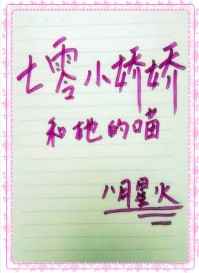 七零小娇娇
和她的喵
八月星火